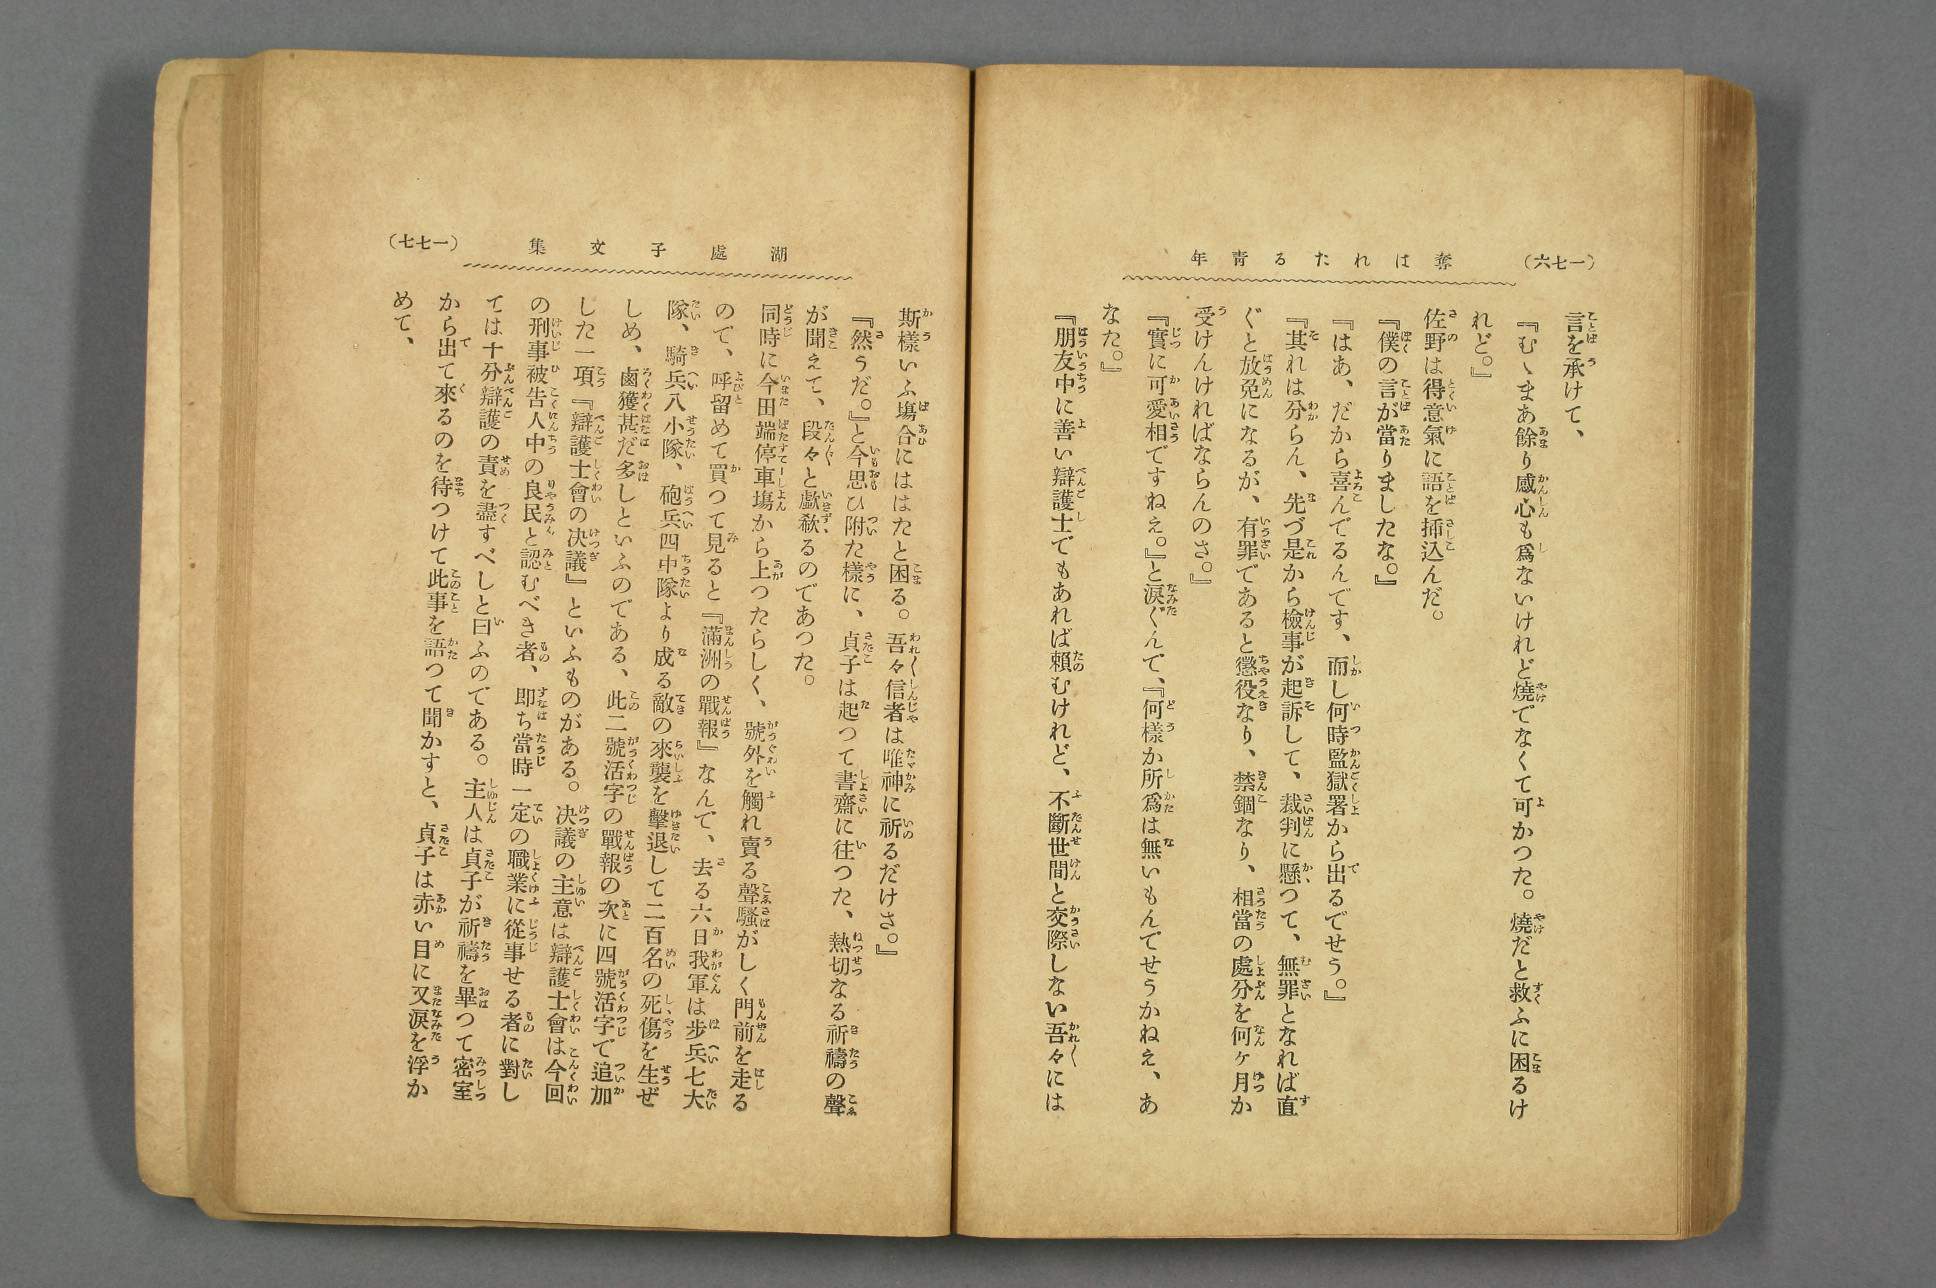 （一七六）
奪はれたる靑年
言を承けて、
『むゝまあ餘り感心も爲ないけれど燒でなくて可かつた。燒だと救ふに困るけ
れど。』
佐野は得意氣に語を揷込んだ。
『僕の言が當りましたな。』
『はあ、だから喜んでるんです、而し何時監獄署から出るでせう。』
『其れは分らん、先づ是から檢事が起訴して、裁判に懸つて、無罪となれば直
ぐと放免になるが、有罪であると懲役なり、禁錮なり、相當の處分を何ヶ月か
受けんければならんのさ。』
『實に可愛相ですねえ。』と淚ぐんで、『何樣か所爲は無いもんでせうかねえ、あ
なた。』
『朋友中に善い辯護士でもあれば賴むけれど、不斷世間と交際しない吾々には
湖處子文集
（一七七）
斯樣いふ塲合にははたと困る。吾々信者は唯神に祈るだけさ。』
『然うだ。』と今思ひ附た樣に、貞子は起つて書齋に往つた、熱切なる祈禱の聲
が聞えて、段々と歔欷るのであつた。
同時に今田端停車塲から上つたらしく、號外を觸れ賣る聲騷がしく門前を走る
ので、呼留めて買つて見ると『滿洲の戰報』なんて、去る六日我軍は步兵七大
隊、騎兵八小隊、砲兵四中隊より成る敵の來襲を擊退して二百名の死傷を生ぜ
しめ、鹵獲甚だ多しといふのである、此二號活字の戰報の次に四號活字で追加
した一項『辯護士會の决議』といふものがある。决議の主意は辯護士會は今回
の刑事被告人中の良民と認むべき者、即ち當時一定の職業に從事せる者に對し
ては十分辯護の責を盡すべしと曰ふのである。主人は貞子が祈禱を畢つて密室
から出て來るのを待つけて此事を語つて聞かすと、貞子は赤い目に又淚を浮か
めて、